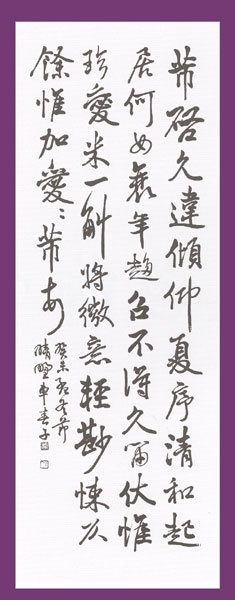 芾啓久違傾仰夏序清和起
居何如衰年趨召不得久留伏惟
珍愛米一斛將微意輕尠悚仄
餘惟加愛〻芾頓首
癸未